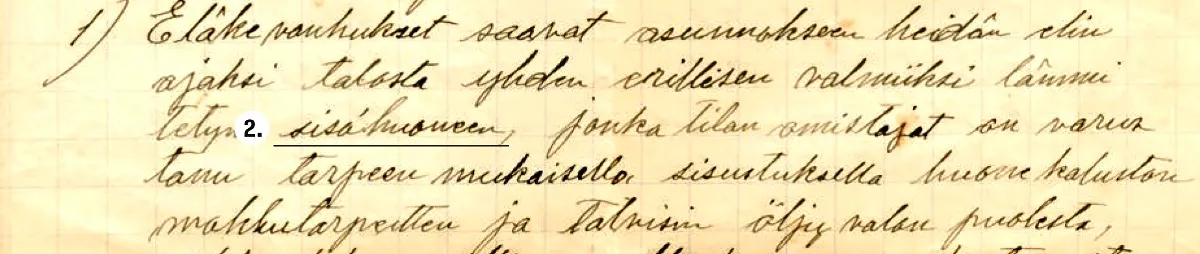 1) Eläke vanhukset saavat asunnokseen heidän elin
ajaksi talosta yhden erillisen valmiiksi lämmi
tetyn 2. sisähuoneen, jonka tilan omistajat on varus
tanu tarpeen mukaisella sisustuksella huone kaluston
makkutarpeitten ja talvisin öljy valon puolesta,